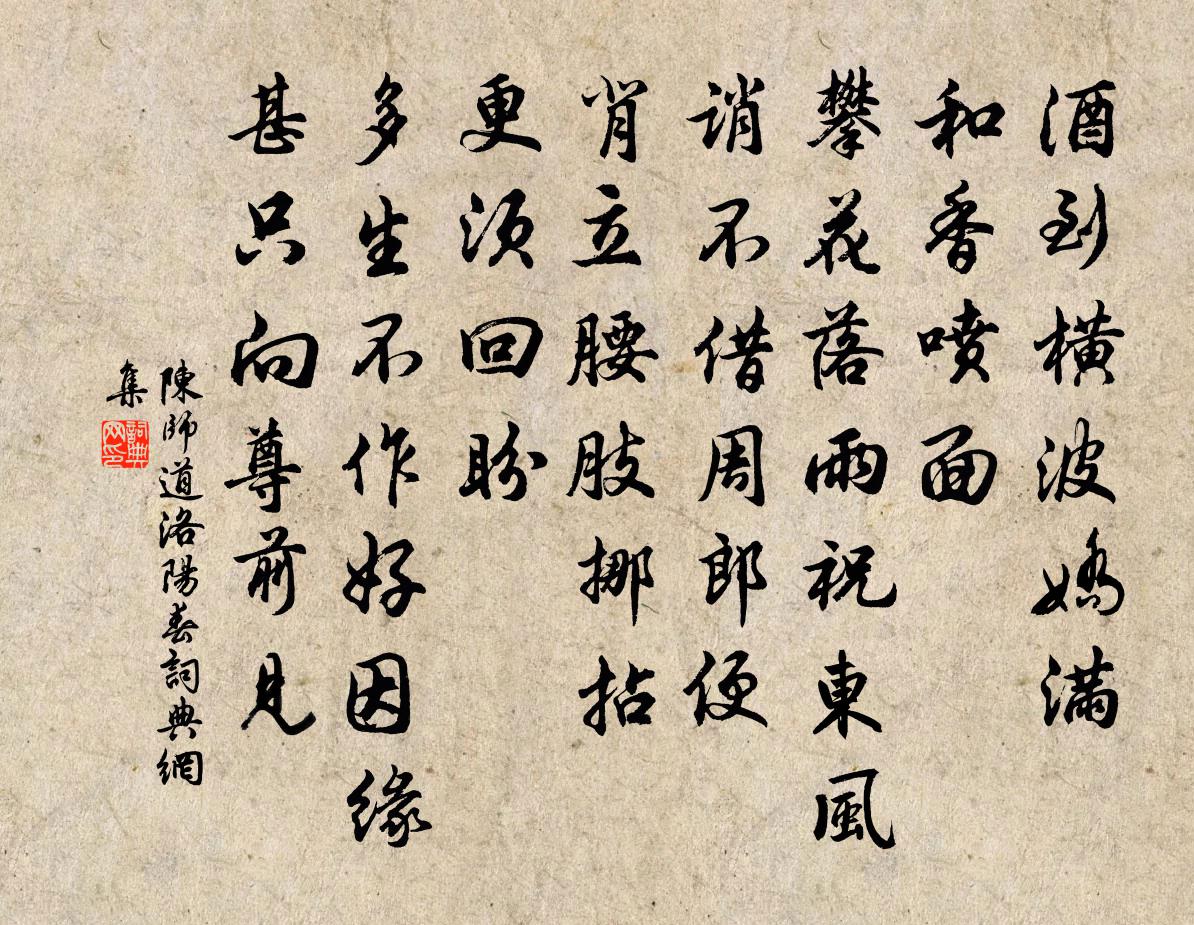 酒到横波嬌滿
和香噴面
攀花落雨祝東風
誚不借周郎便
背立腰肢挪拈
更須回盼
多生不作好因緣
甚只向尊前見
陳師道洛陽春詞典網
集
詞典
网印